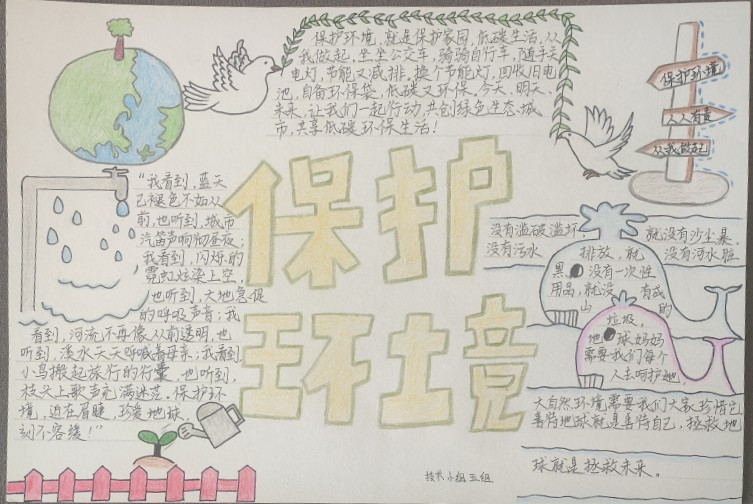 保护环境，就是保护家园，低碳生活，从
我做起，坐坐公交车，骑骑自行车，随手关
电灯，节能又减排，换个节能灯，回收旧电
池，自备环保袋，低碳又环保，今天、明天、
未来，让我们一起行动，共创绿色生态城
市，共享低碳环保生活！
保护环境
人人有责
从我做起
“我看到，蓝天
已褪色不如从
前，也听到，城市
汽笛声响彻昼夜；
我看到，闪烁的
霓虹炫染上空，
也听到，大地急促
的呼吸声音；我
看到，河流不再像从前透明，也
听到，溪水天天呼喊着母亲；我看到
小鸟搬起旅行的行囊，也听到，
枝头上歌声充满迷茫。保护环
境，迫在眉睫，珍爱地球，
刻不容缓！”
保护
环境
没有滥砍滥坏 就没有沙尘暴，
没有污水 排放，就 没有河水脏
黑，没有一次性
用品，就没 有成
山 的
垃圾，
地球妈妈
需要我们每个
人去呵护她，
大自然环境需要我们大家珍惜它
善待地球就是善待自己，拯救地
球就是拯救未来。
技术小组三组